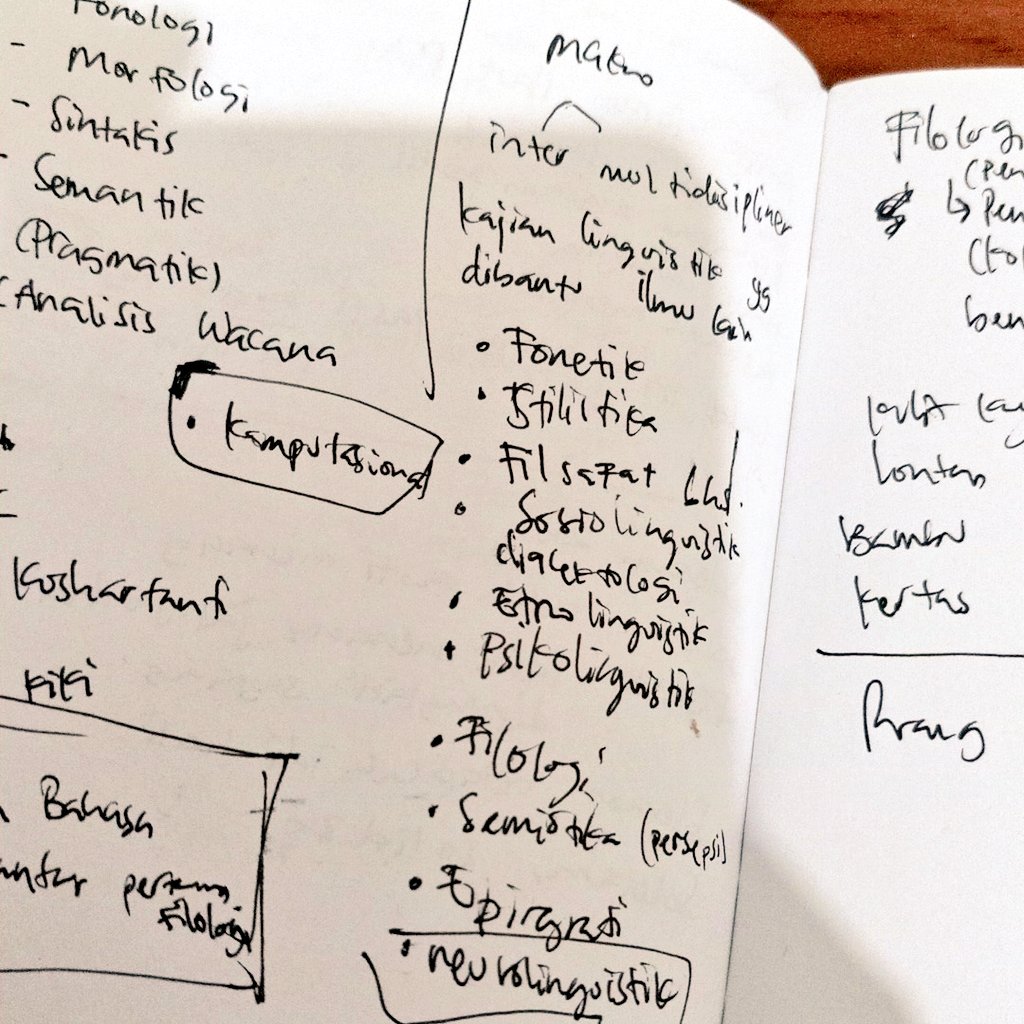 Fonologi
- Morfologi
- Sintakis
- Semantik
(Pragmatik)
(Analisis Wacana
• Kamputasional
Kushartanti
Kiki
Bahasa
pertama
filologi
Makro
inter multidisipliner
kajian linguistik yg
dibantu ilmu lain
• Fonetik
• Stilistika
• Filsafat bhs.
• Sosiolinguistik
dialektologi
• Etnolinguistik
• Psikolinguistik
• Filologi
• Semiotika (persepsi)
• Epigrafi
• neurolinguistik
Filologi
(pen
↳ pen
ben
kulit kay
lontar
Bambu
kertas
Prang